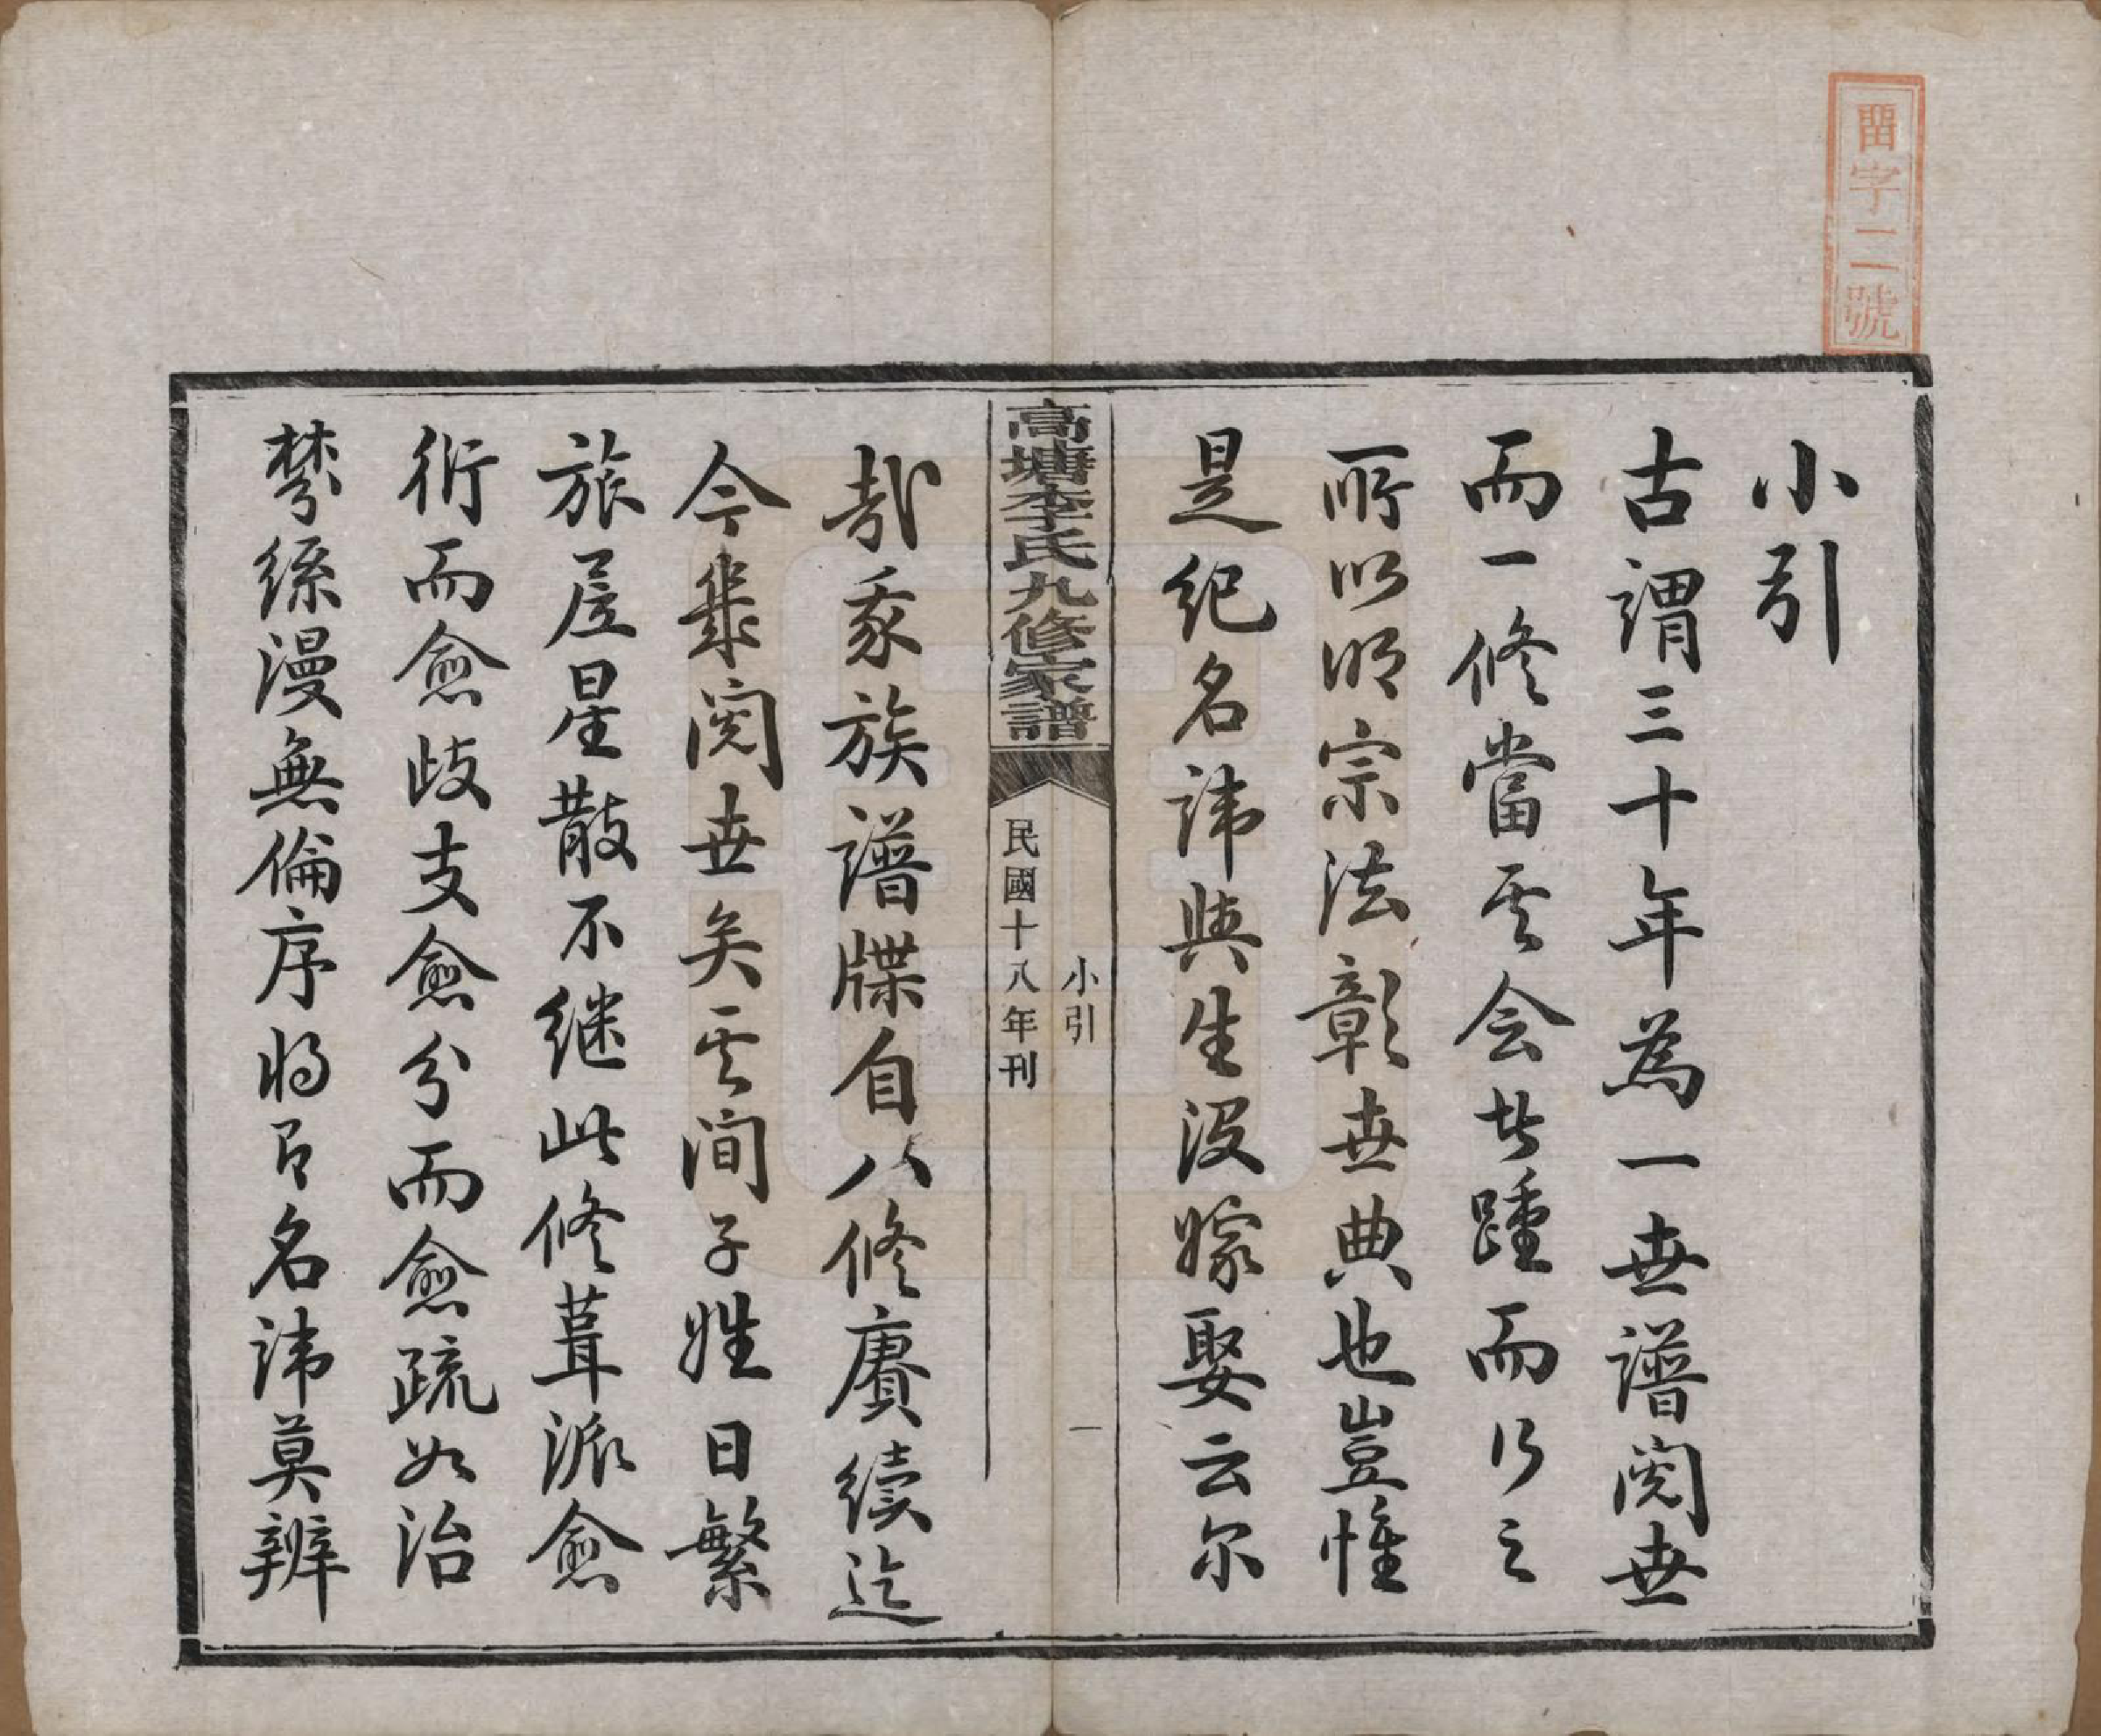 畱字二號
小引
古謂三十年為一世譜閱世
而一修當其會者踵而行之
所以明宗法彰世典也豈惟
是紀名諱與生沒嫁娶云尔
高塘李氏九修家譜
小引
一
民國十八年刊
哉我族譜牒自八修賡續迄
今幾閱世矣其間子姓日繁
旅居星散不继此修葺派愈
衍而愈歧支愈分而愈疏如治
棼絲漫無倫序將名諱莫辨